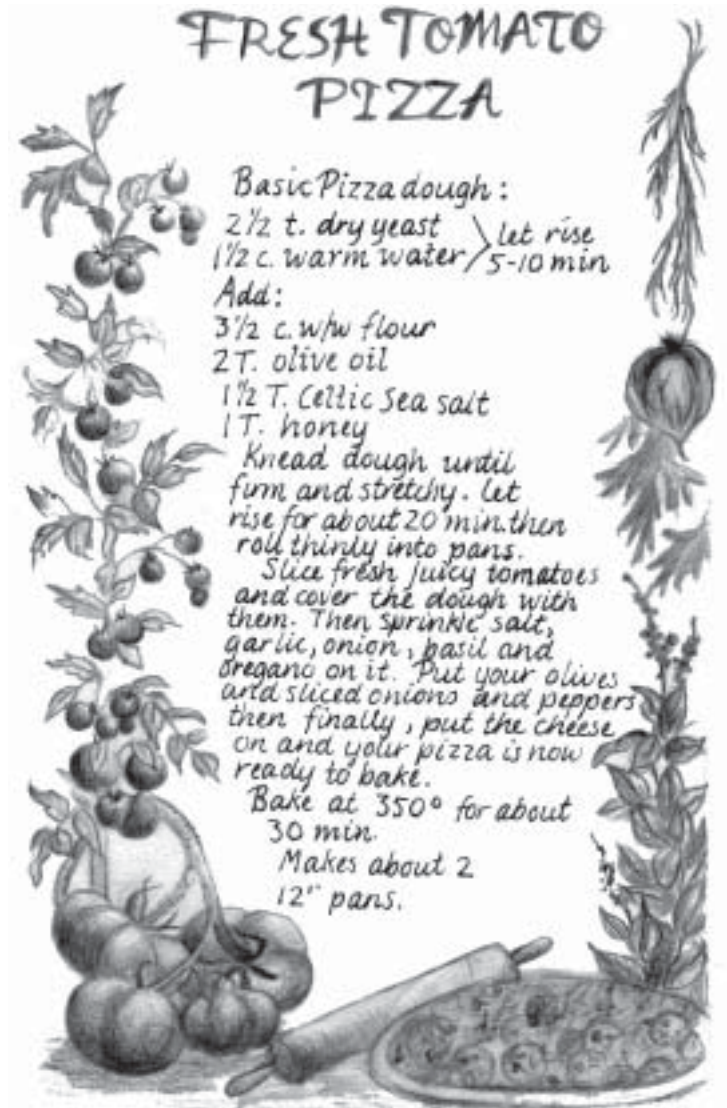 FRESH TOMATO
PIZZA
Basic Pizza dough:
2½ t. dry yeast
1½ c. warm water
let rise
5-10 min
Add:
3½ c. w/w flour
2 T. olive oil
1½ T. Celtic Sea salt
1 T. honey
Knead dough until
firm and stretchy. Let
rise for about 20 min. then
roll thinly into pans.
Slice fresh juicy tomatoes
and cover the dough with
them. Then sprinkle salt,
garlic, onion, basil and
oregano on it. Put your olives
and sliced onions and peppers
then finally, put the cheese
on and your pizza is now
ready to bake.
Bake at 350° for about
30 min.
Makes about 2
12" pans.